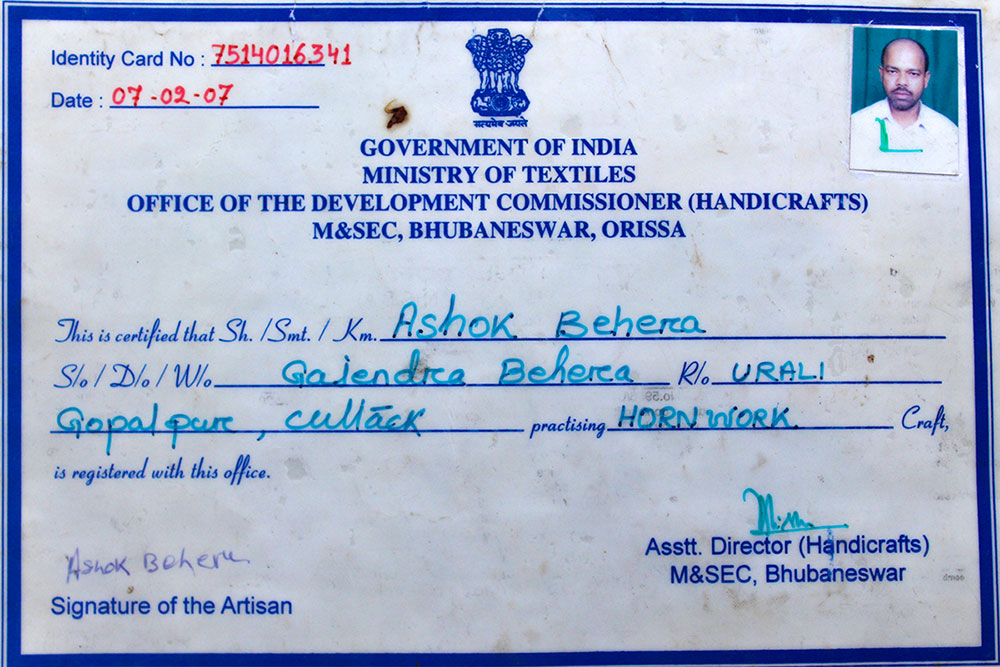 Identity Card No : 7514016341
Date : 07-02-07
सत्यमेव जयते
GOVERNMENT OF INDIA
MINISTRY OF TEXTILES
OFFICE OF THE DEVELOPMENT COMMISSIONER (HANDICRAFTS)
M&SEC, BHUBANESWAR, ORISSA
This is certified that Sh. /Smt. / Km. Ashok Behera
S/o / D/o / W/o Gajendra Behera R/o URALI
Gopalpur, Cuttack practising HORN WORK. Craft,
is registered with this office.
Ashok Behera
Signature of the Artisan
Asstt. Director (Handicrafts)
M&SEC, Bhubaneswar